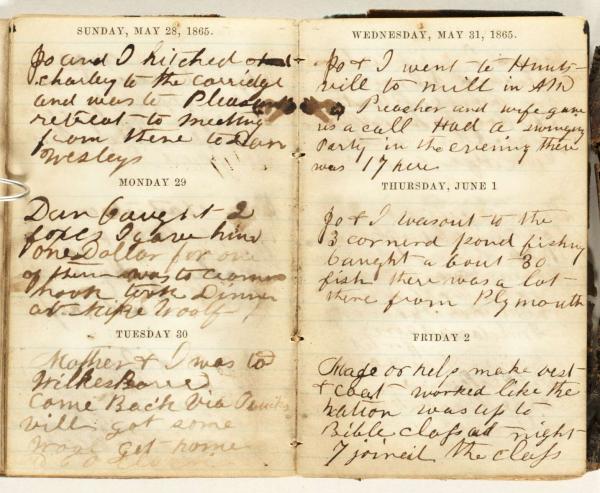 SUNDAY, MAY 28, 1865.
Jo and I hitched
charley to the carridge
and was to Pleasant
retreat to meeting
from there to Dan
Wesleys
MONDAY 29
Dan Caught 2
foxes I gave him
one Dollar for one
of them was to
hook took Dinner
at Mike Woolf
TUESDAY 30
Mother & I was to
WilkesBarre
Came Back Via
vill got some
get home
WEDNESDAY, MAY 31, 1865.
Jo & I went to Hunts-
vill to mill in AM
Preacher and wife gave
us a call Had a swinging
Party in the evening there
was 17 here
THURSDAY, JUNE 1
Jo & I was out to the
3 cornerd pond fishing
Caught a bout 30
fish there was a lot
there from Plymouth
FRIDAY 2
Made or help make vest
& coat worked like the
nation was up to
Bible class at night
7 joined the class